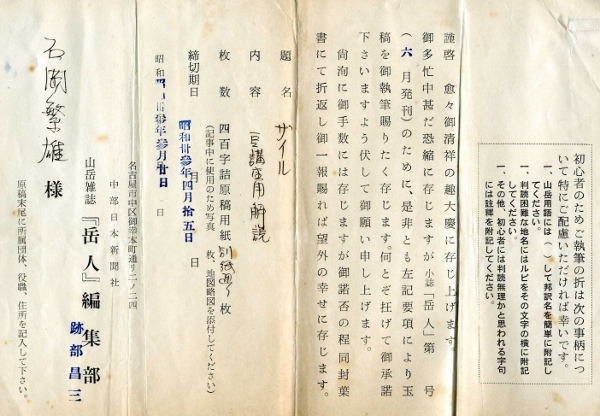 初心者のためご執筆の折は次の事柄につ
いて特にご配慮いただければ幸いです。
一、山岳用語には（　）して邦訳名を簡単に附記し
てください。
一、判読困難な地名にはルビをその文字の横に附記
してください。
一、その他、初心者には判読無理かと思われる字句
には註釋を附記してください。
謹啓　愈々御清祥の趣大慶に存じ上げます。
御多忙中甚だ恐縮に存じますが小誌「岳人」第　　号
（六　月発刊）のために、是非とも左記要項により玉
稿を御執筆賜りたく存じます。何とぞ枉げて御承諾
下さいますよう伏して御願い申し上げます。
尚洵に御手数には存じますが御諾否の程同封葉
書にて折返し御一報賜れば望外の幸せに存じます。
題　名　ザイル
内　容　講座用解説
枚　数　四百字詰原稿用紙別紙通り枚
（記事中に使用のため写真　　枚、地図略図を添付してください）
締切期日　昭和卅参年四月十五日
昭和卅参年参月廿日
名古屋市中区御幸本町通り二ノ二四
中部日本新聞社
山岳雑誌『岳人』編集部
跡部昌三
石岡繁雄様
原稿末尾に所属団体、役職、住所を記入して下さい。